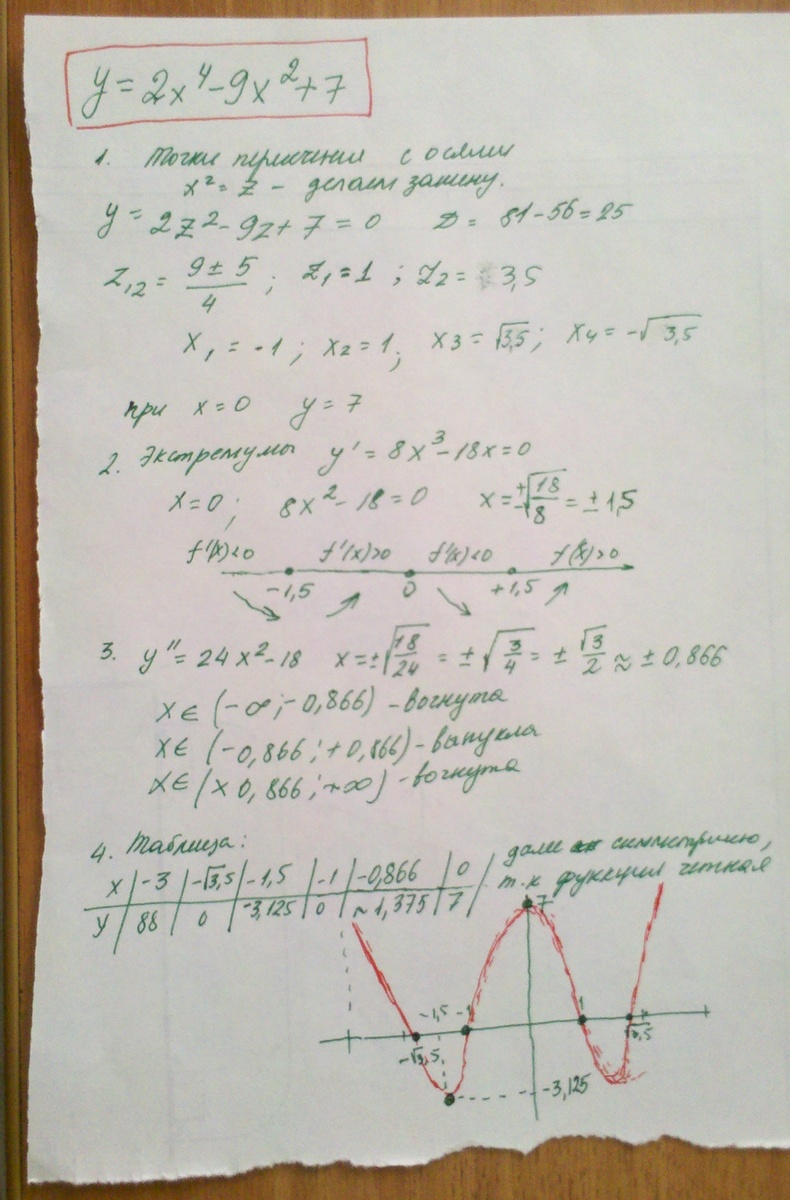 y = 2x⁴ - 9x² + 7
1. Точки пересечения с осями
x² = z - делаем замену.
y = 2z² - 9z + 7 = 0 D = 81 - 56 = 25
z₁,₂ = (9 ± 5)/4 ; z₁ = 1 ; z₂ = 3,5
x₁ = -1 ; x₂ = 1 ; x₃ = √3,5 ; x₄ = -√3,5
при x = 0 y = 7
2. Экстремумы y' = 8x³ - 18x = 0
x = 0 ; 8x² - 18 = 0 x = ±√(18/8) = ± 1,5
f'(x)<0 f'(x)>0 f'(x)<0 f'(x)>0
-1,5 0 +1,5
3. y'' = 24x² - 18 x = ±√(18/24) = ±√(3/4) = ± √3/2 ≈ ± 0,866
x ∈ (-∞; -0,866) - вогнута
x ∈ (-0,866 ; +0,866) - выпукла
x ∈ (x 0,866 ; +∞) - вогнута
4. Таблица:
x | -3 | -√3,5 | -1,5 | -1 | -0,866 | 0
y | 88 | 0 | -3,125 | 0 | ~1,375 | 7
далее симметрично,
т.к функция четная
7
-1,5 -1 1
-√3,5 √3,5
-3,125